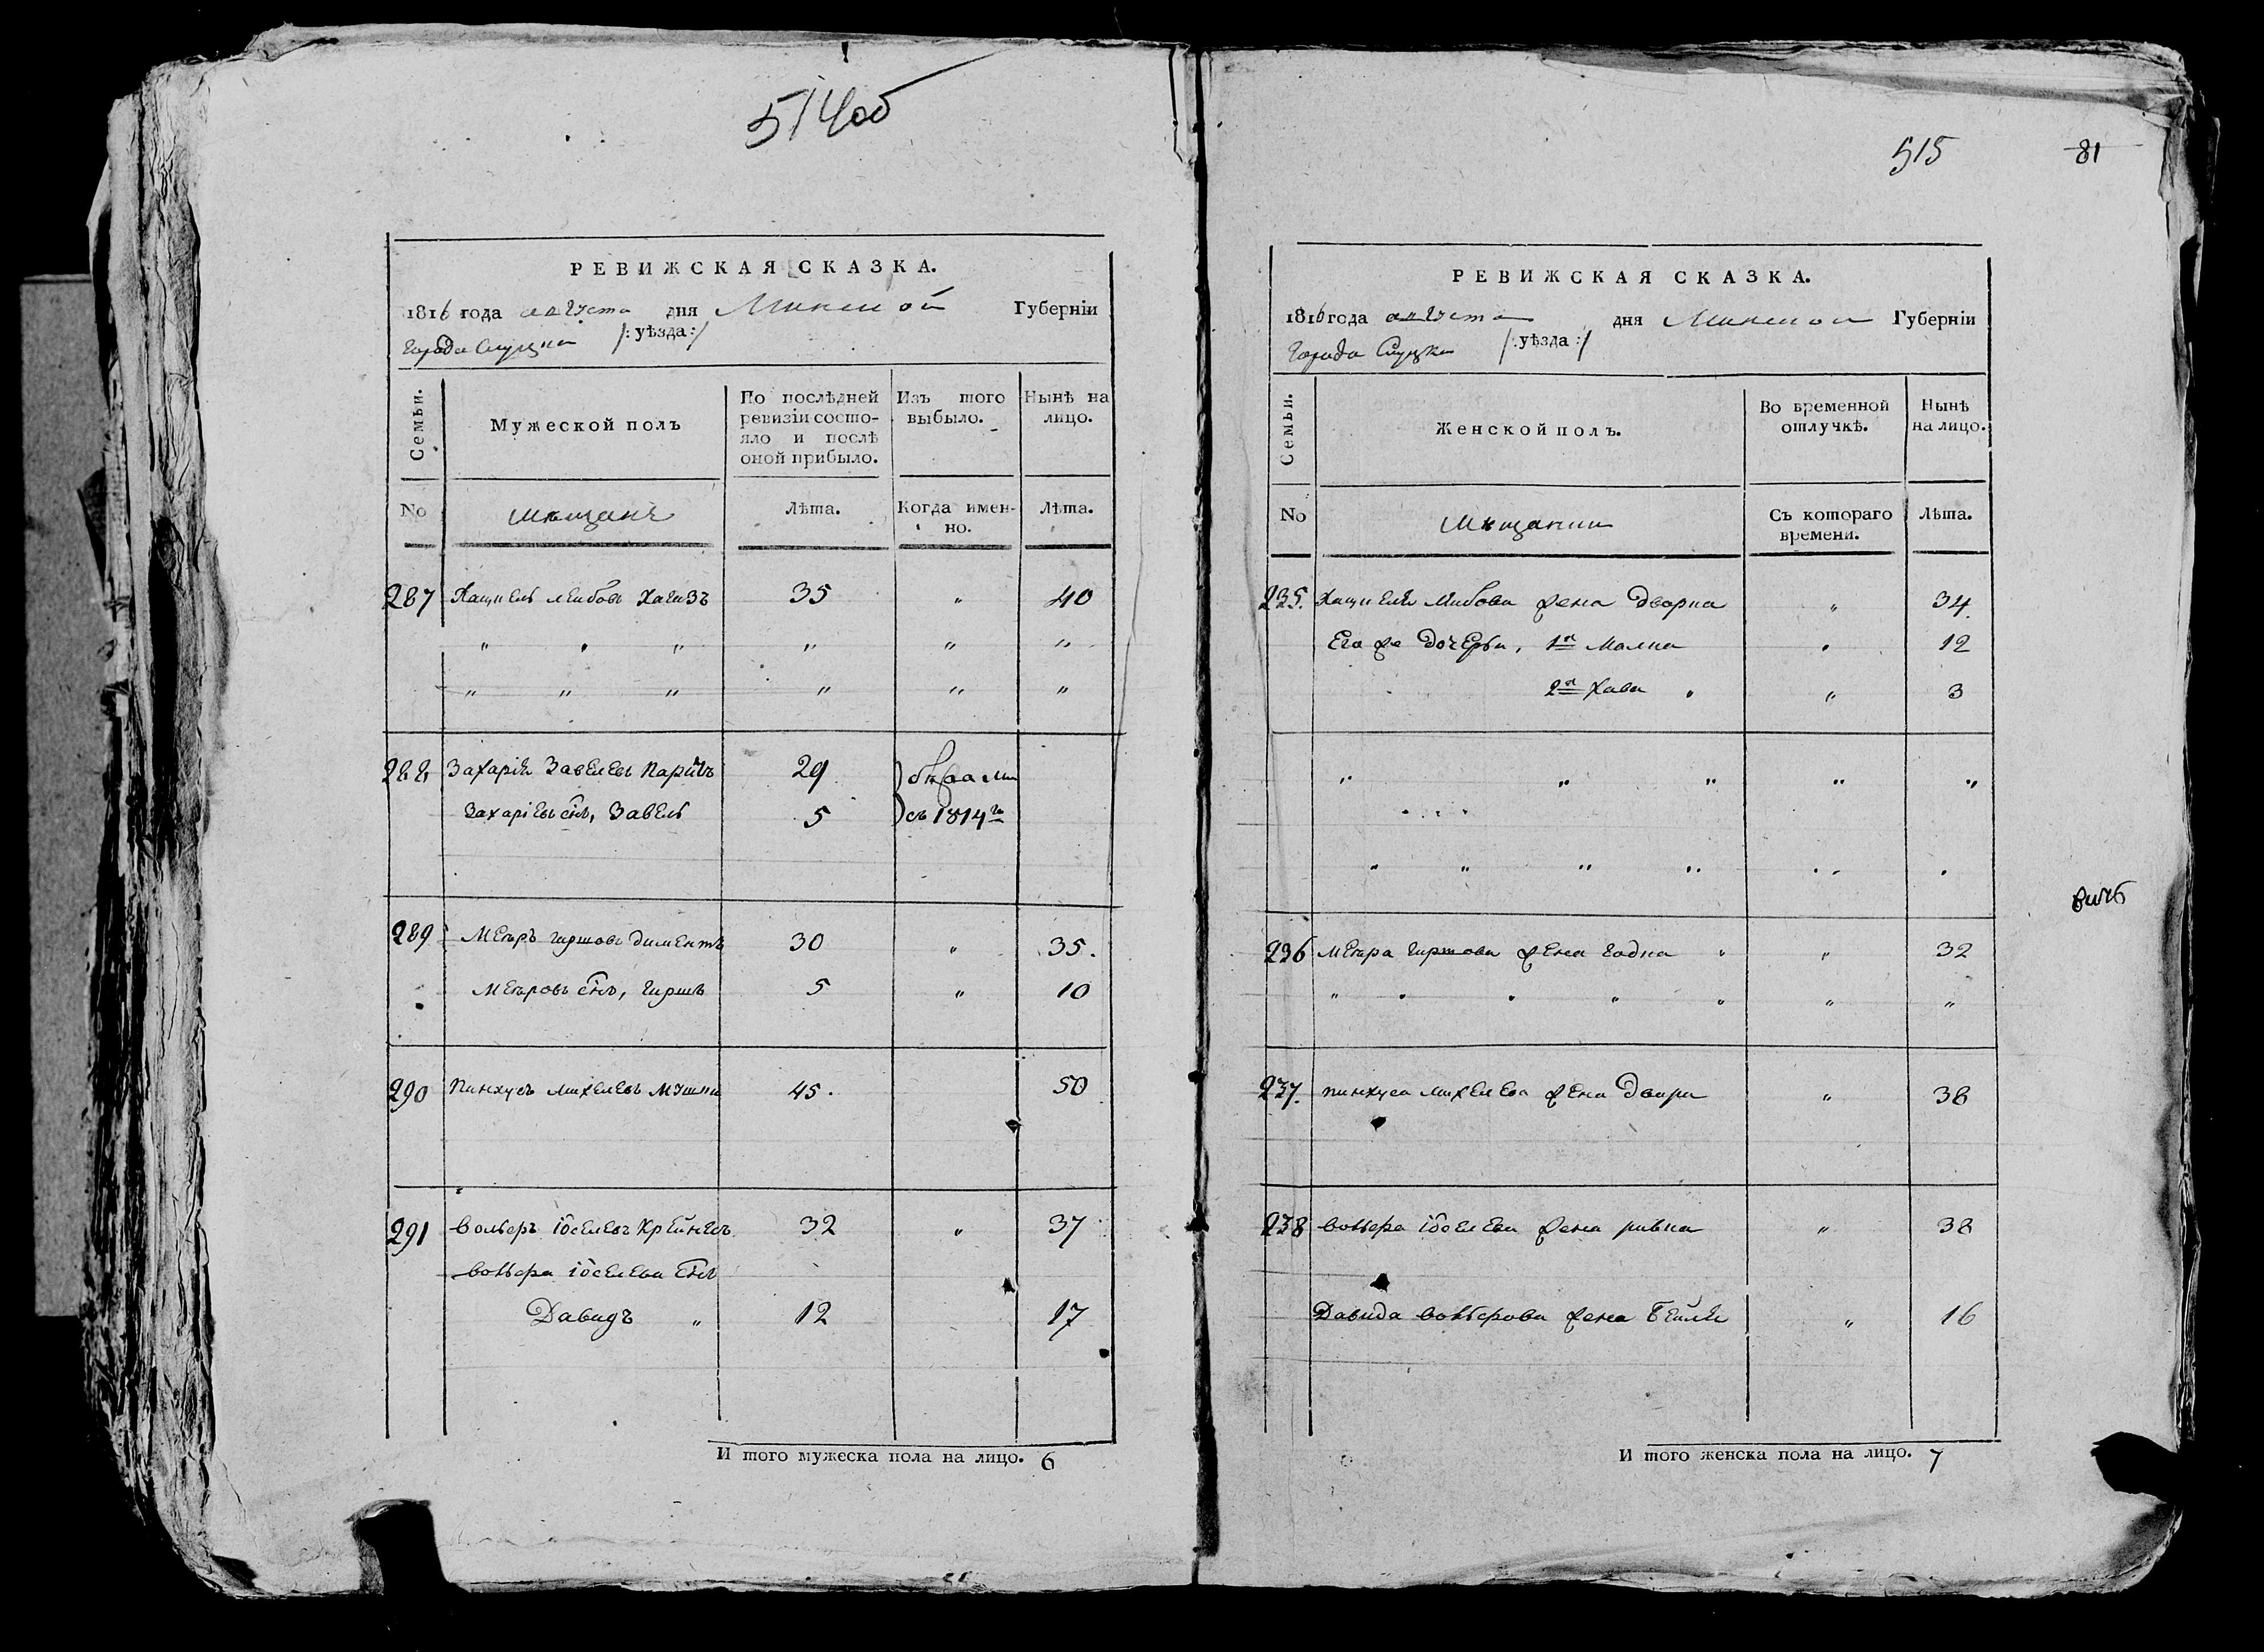 514об
РЕВИЖСКАЯ СКАЗКА.
1816 года августа дня Минской Губерніи
Города Слуцка /: уѣзда :/
Семьи.
Мужеской полъ
По послѣдней ревизіи состо-
яло и послѣ
оной прибыло.
Изъ того
выбыло.
Нынѣ на
лицо.
No
мѣщанъ
Лѣта.
Когда имен-
но.
Лѣта.
287 Хацкель Лейбовъ 35 " 40
" " " " " "
" " " " " "
288 Захарія Завелевъ 29
Захаріевъ снъ, Завель 5 съ 1814го
289 Мееръ Гиршовъ Диментъ 30 " 35.
Мееровъ снъ, Гиршъ 5 " 10
290 Пинхусъ Михелевъ 45. 50
291 Вольфъ Іоселевъ Крейнесъ 32 " 37
Вольфа Іоселева снъ
Давидъ " 12 17
И того мужеска пола на лицо. 6
515
81
РЕВИЖСКАЯ СКАЗКА.
1816 года августа дня Минской Губерніи
Города Слуцка /: уѣзда :/
Семьи.
Женской полъ.
Во временной
отлучкѣ.
Нынѣ
на лицо.
No
мѣщанки
Съ котораго
времени.
Лѣта.
235. Лейбова жена Дворка " 34.
Его же дочери, 1я Малка " 12
2я Хава " " 3
" " " " "
" " " " " "
236 Меера Гиршова жена Годка " " 32
" " " " " " "
237. Пинхуса Михелева жена Двейра " 38
238 Вольфа Іоселева жена Ривка " 38
Давида Вольфова жена Бейля " 16
И того женска пола на лицо. 7